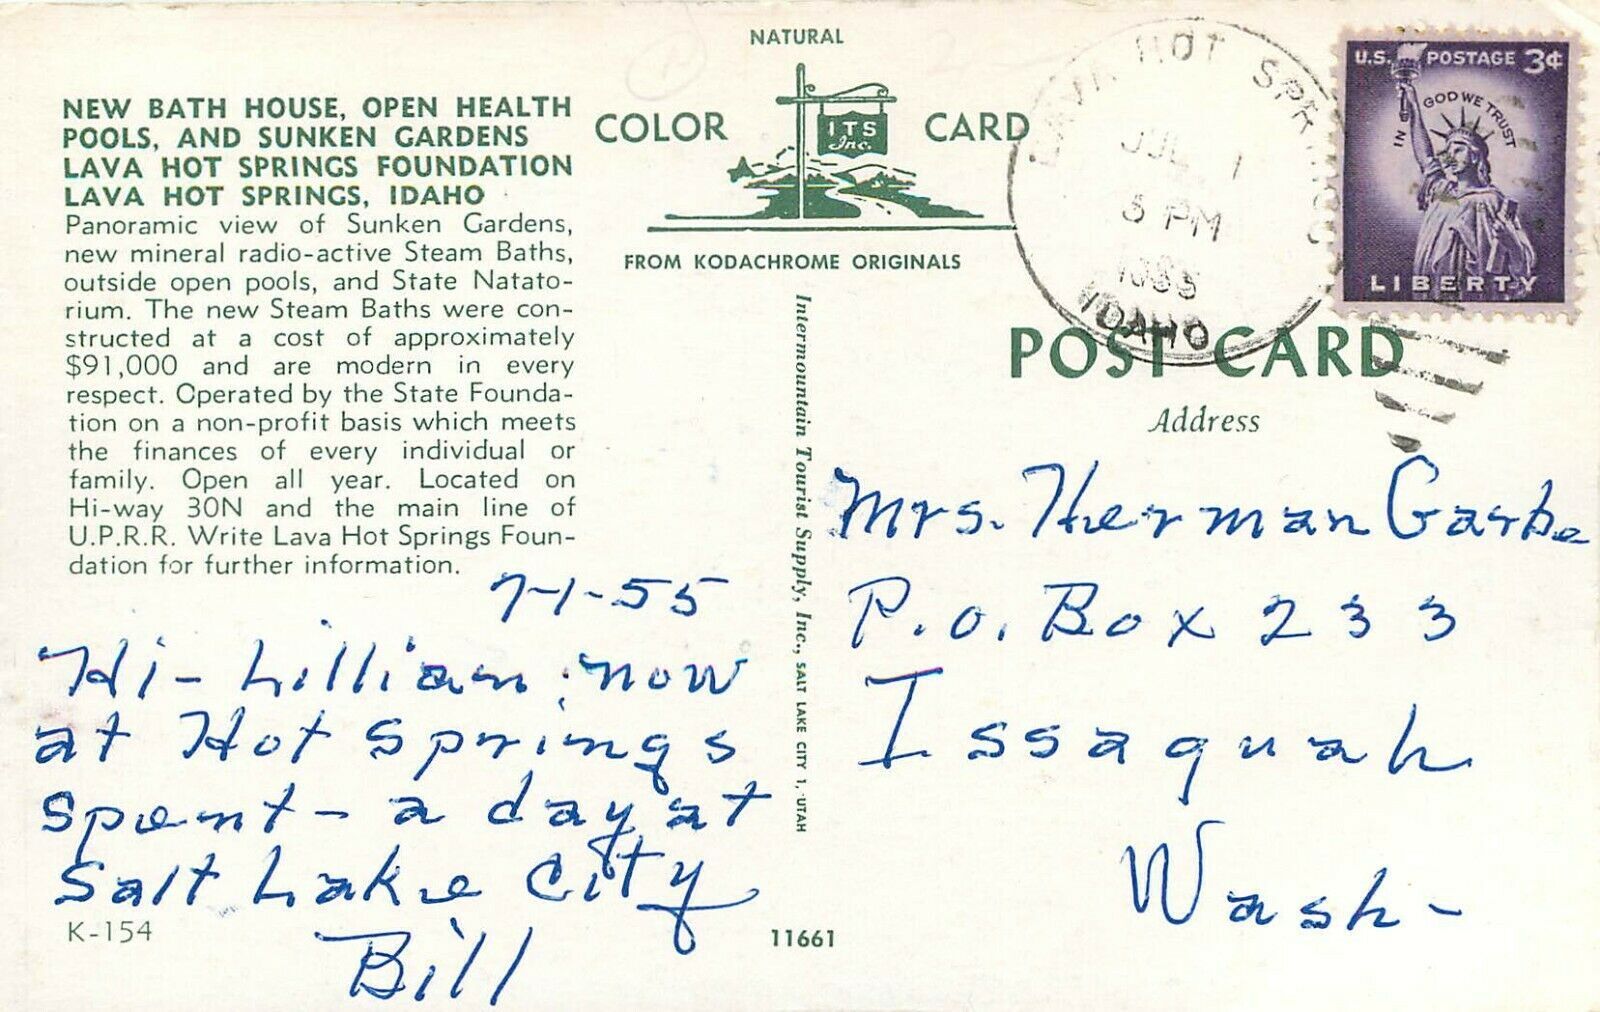 NATURAL
COLOR CARD
ITS
Inc.
FROM KODACHROME ORIGINALS
NEW BATH HOUSE, OPEN HEALTH
POOLS, AND SUNKEN GARDENS
LAVA HOT SPRINGS FOUNDATION
LAVA HOT SPRINGS, IDAHO
Panoramic view of Sunken Gardens,
new mineral radio-active Steam Baths,
outside open pools, and State Natato-
rium. The new Steam Baths were con-
structed at a cost of approximately
$91,000 and are modern in every
respect. Operated by the State Founda-
tion on a non-profit basis which meets
the finances of every individual or
family. Open all year. Located on
Hi-way 30N and the main line of
U.P.R.R. Write Lava Hot Springs Foun-
dation for further information.
7-1-55
Hi- Lillian; now
at Hot Springs
spent - a day at
Salt Lake City
Bill
K-154
11661
Intermountain Tourist Supply, Inc., SALT LAKE CITY 1, UTAH
LAVA HOT SPRINGS
JUL 1
5 PM
1955
IDAHO
U.S. POSTAGE 3¢
IN GOD WE TRUST
LIBERTY
POST CARD
Address
Mrs. Herman Garbe
P.O. Box 233
Issaquah
Wash-